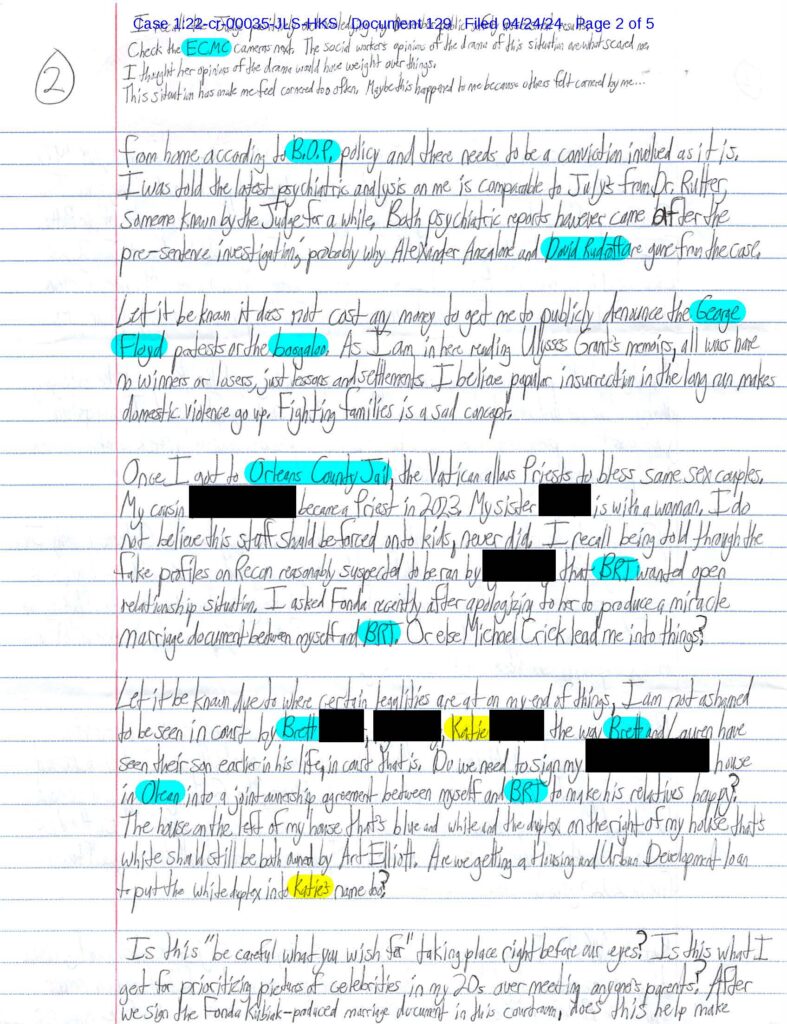 Case 1:22-cr-00035-JLS-HKS Document 129 Filed 04/24/24 Page 2 of 5
Check the ECMC cameras next. The social workers opinions of the drama of this situation are what scared me.
I thought her opinions of the drama would have weight over things.
This situation has made me feel cornered too often. Maybe this happened to me because others felt cornered by me...
2
from home according to B.O.P. policy and there needs to be a conviction involved as it is.
I was told the latest psychiatric analysis on me is comparable to July's from Dr. Rutter,
someone known by the Judge for a while. Both psychiatric reports however came after the
pre-sentence investigation, probably why Alexander Anzalone and David Rudroff are gone from the case.
Let it be known it does not cost any money to get me to publicly denounce the George
Floyd protests or the boogaloo. As I am in here reading Ulysses Grant's memoirs, all wars have
no winners or losers, just lessons and settlements. I believe popular insurrection in the long run makes
domestic violence go up. Fighting families is a sad concept.
Once I got to Orleans County Jail, the Vatican allows Priests to bless same sex couples.
My cousin became a Priest in 2023. My sister is with a woman. I do
not believe this stuff should be forced onto kids, never did. I recall being told through the
fake profiles on Recon reasonably suspected to be ran by that BRT wanted open
relationship situation. I asked Fonda recently after apologizing to her to produce a miracle
marriage document between myself and BRT. Or else Michael Crick lead me into things?
Let it be known due to where certain legalities are at on my end of things, I am not ashamed
to be seen in court by Brett , , Katie the way Brett and Lauren have
seen their son earlier in his life, in court that is. Do we need to sign my house
in Olean into a joint ownership agreement between myself and BRT to make his relatives happy?
The house on the left of my house that's blue and white and the duplex on the right of my house that's
white should still be both owned by Art Elliott. Are we getting a Housing and Urban Development loan
to put the white duplex into Katie's name too?
Is this "be careful what you wish for" taking place right before our eyes? Is this what I
get for prioritizing pictures of celebrities in my 20s over meeting anyone's parents? After
we sign the Fonda Kubiak-produced marriage document in this courtroom, does this help make